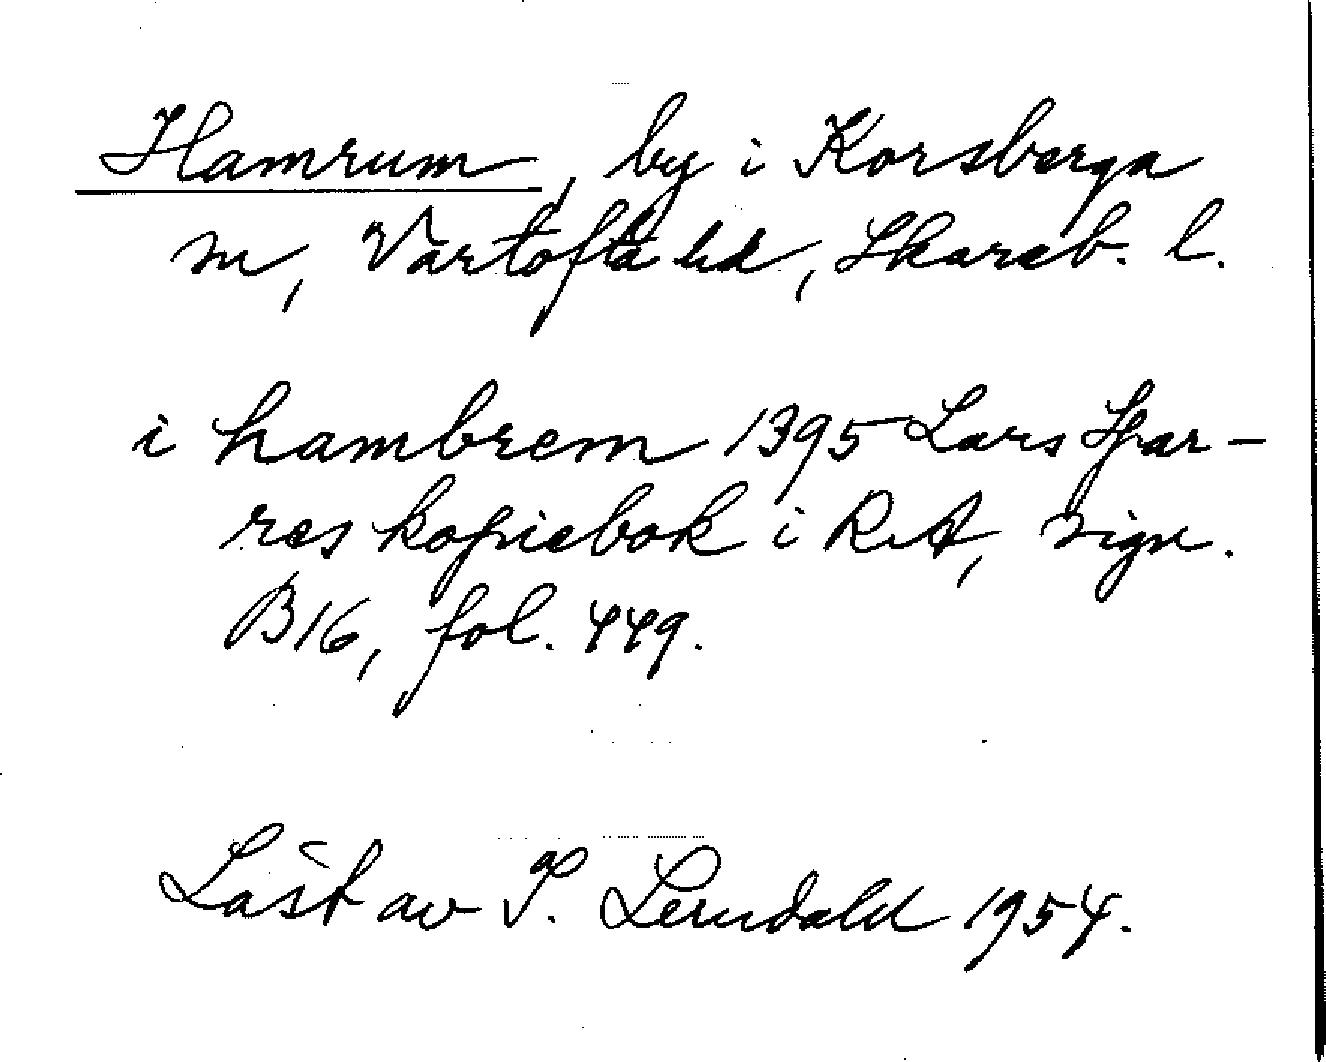 Hamrum, by i Korsberga
sn, Vartofta hd, Skarab. l.
i hambrem 1395 Lars Spar-
res kopiebok i RA, sign.
B16, fol. 449.
Läst av I. Lundahl 1954.